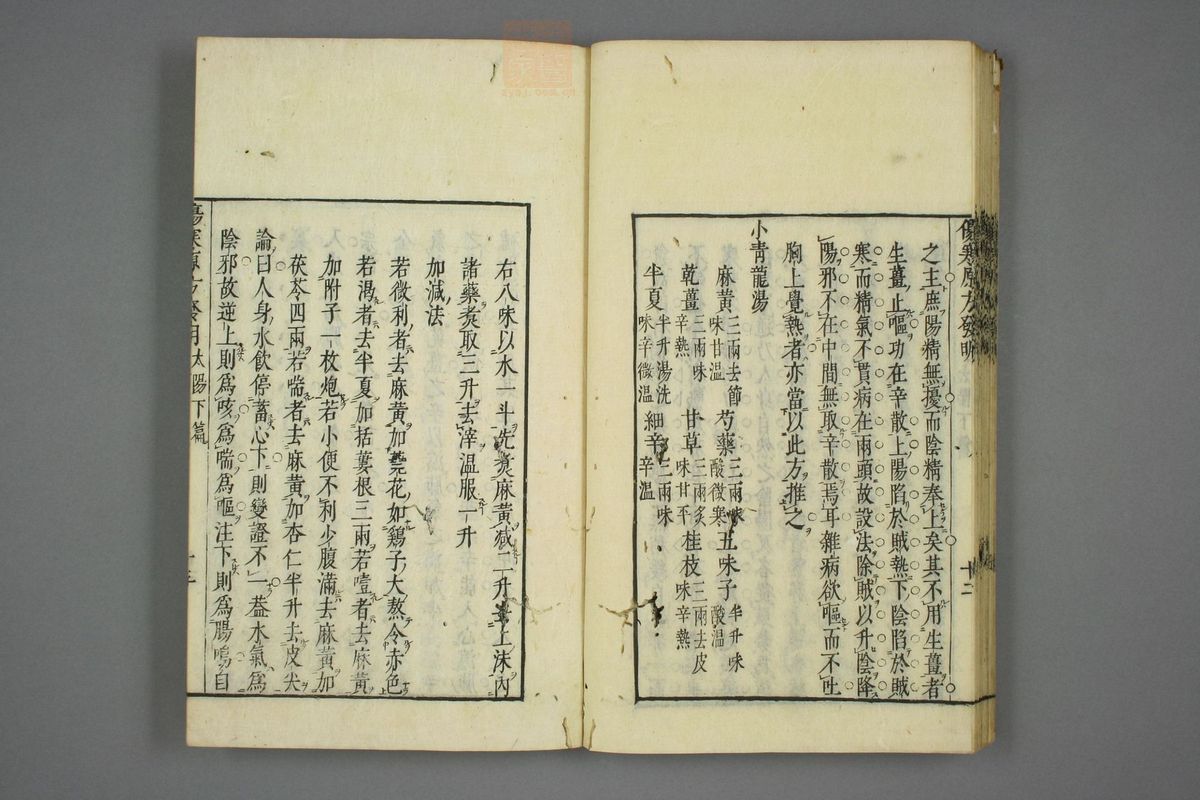 傷寒原方發明
十二
之主庶陽精無擾而陰精奉上矣其不用生薑者
生薑止嘔功在辛散上陽陷於賊熱下陰陷於賊
寒而精氣不貫病在兩頭故設法除賊以升陰降
陽邪不在中間無取辛散焉耳雜病欲嘔而不吐
胸上覺熱者亦當以此方推之
小青龍湯
麻黃三兩去節味甘溫 芍藥三兩味酸微寒 五味子半升味酸溫
乾薑三兩味辛熱 甘草三兩炙味甘平 桂枝三兩去皮味辛熱
半夏半升湯洗味辛微溫 細辛三兩味辛溫
右八味以水一斗先煮麻黃減二升去上沫內
諸藥煮取三升去滓溫服一升
加減法
若微利者去麻黃加蕘花如鷄子大熬令赤色
若渴者去半夏加括蔞根三兩若噎者去麻黃
加附子一枚炮若小便不利少腹滿去麻黃加
茯苓四兩若喘者去麻黃加杏仁半升去皮尖
論曰人身水飲停蓄心下則變證不一葢水氣爲
陰邪故逆上則爲咳爲喘爲嘔注下則爲腸鳴自
太陽下篇